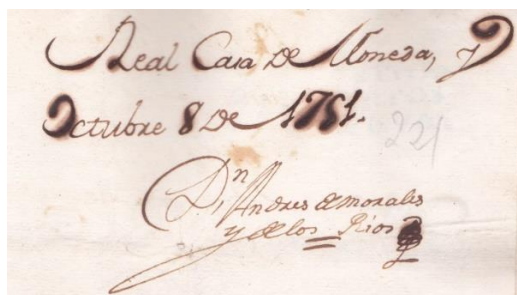 Real Casa de Moneda, y
Octubre 8 de 1751.
221
Dn Andres de morales
y de los Rios